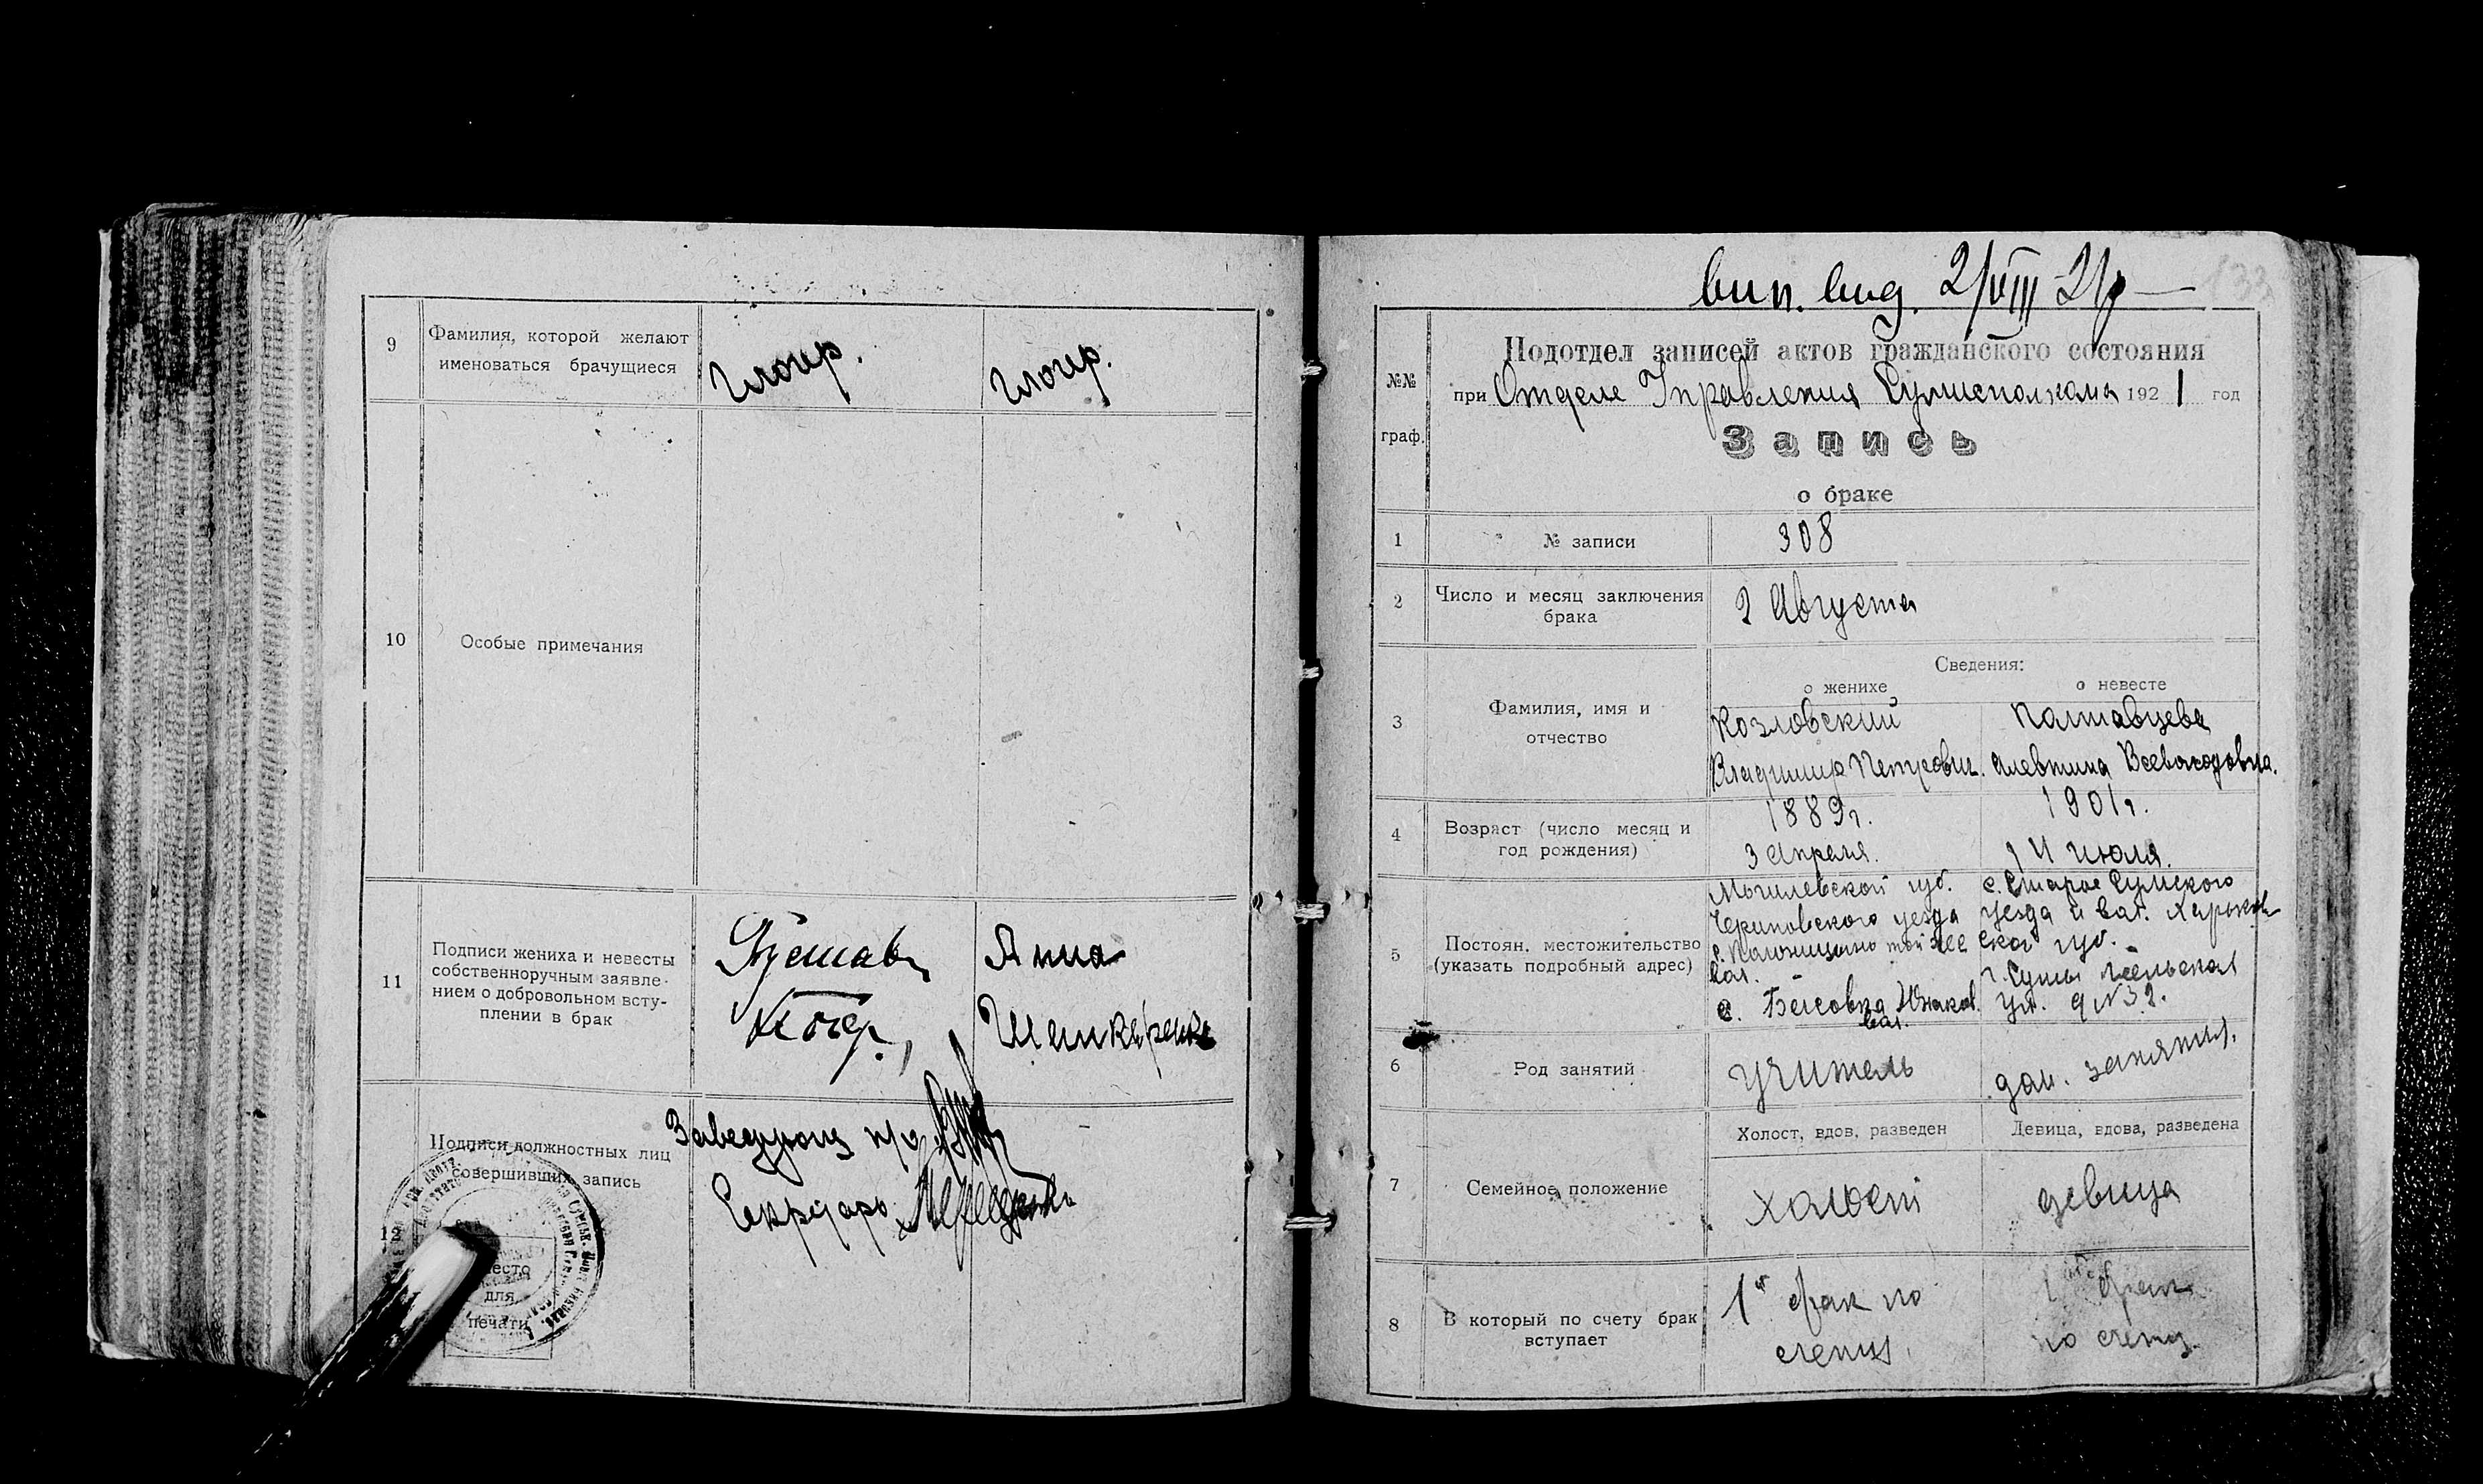 9
Фамилия, которой желают
именоваться брачущиеся
10
Особые примечания
11
Подписи жениха и невесты
собственноручным заявле-
нием о добровольном всту-
плении в брак
Густав
Анна
Подписи должностных лиц
совершивших запись
Секретарь
место
для
печати
вып. выд. 2/VIII 21 г
133
№№
граф.
Подотдел записей актов гражданского состояния
при Отделе Управления Сумисполкома 1921 год
Запись
о браке
1
№ записи
308
2
Число и месяц заключения
брака
2 Августа
3
Фамилия, имя и
отчество
Сведения:
о женихе
о невесте
Козловский
Владимир Петрович.
Палтавцева
Алевтина Всеволодовна.
4
Возраст (число месяц и
год рождения)
1889 г.
3 Апреля.
1901 г.
14 июля.
5
Постоян. местожительство
(указать подробный адрес)
Могилевской губ.
Чериковского уезда
той же
вол.
с. Юнаков.
вол.
с. Старое Сумского
уезда и вол. Харьков
ской губ.
г. Сумы
ул. д N 32.
6
Род занятий
учитель
дом. занятия.
7
Семейное положение
Холост, вдов, разведен
Девица, вдова, разведена
холост
девица
8
В который по счету брак
вступает
1й брак по
счету
1й брак
по счету